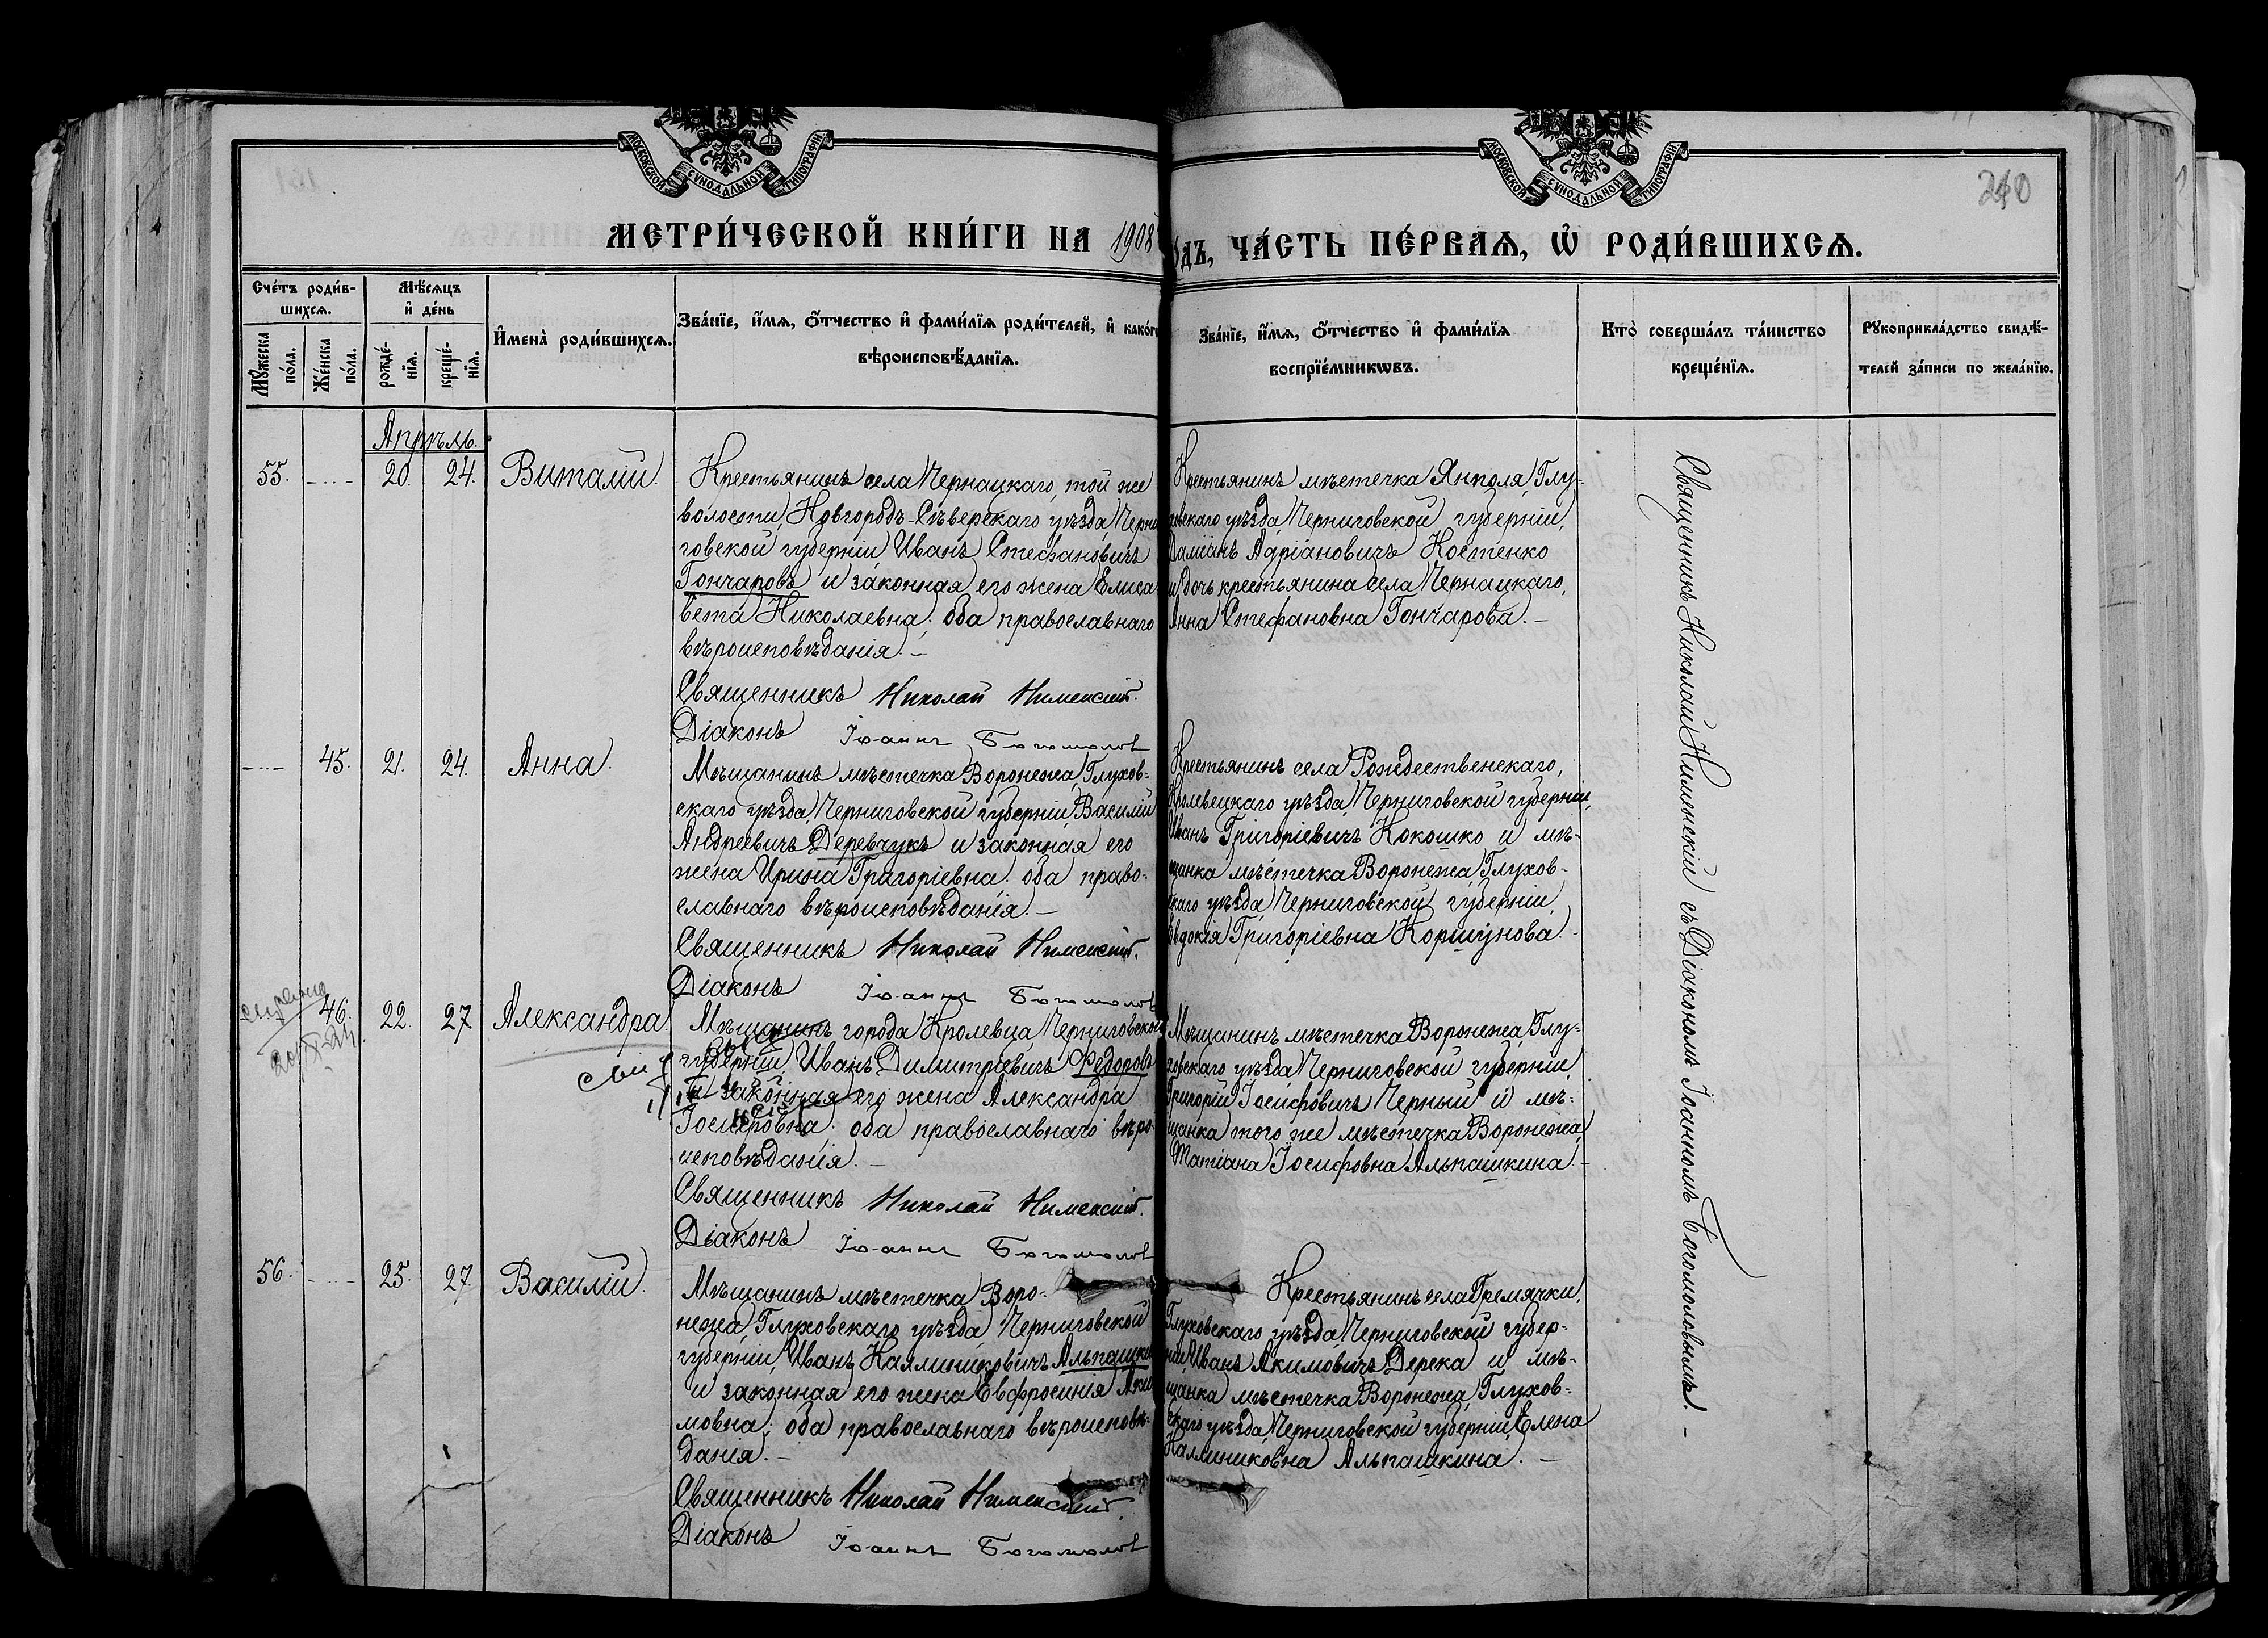 МОСКОВСКОЙ СѴНОДАЛЬНОЙ ТИПОГРАФІИ
МОСКОВСКОЙ СѴНОДАЛЬНОЙ ТИПОГРАФІИ
210
МЕТРИ́ЧЕСКОЙ КНИ́ГИ НА 1908
о́дъ, ЧА́СТЬ ПЕ́РВАЯ, Ѡ РОДИ́ВШИХСЯ.
Сче́тъ роди́в-
шихся.
Мꙋжеска по́ла.
Же́нска по́ла.
Мѣ́сяцъ
и де́нь
рожде́-
нїя.
креще́-
нїя.
И҆мена̀ роди́вшихся.
Зва́нїе, и҆́мя, ѻ҆́тчество и҆ фами́лїя роди́телей, и҆ како́гѡ
вѣроисповѣ́данїя.
Зва́нїе, и҆́мя, ѻ҆́тчество и҆ фами́лїя
воспрїе́мникѡвъ.
Кто̀ соверша́лъ та́инство
креще́нїя.
Рꙋкоприкла́дство свидѣ́-
телей за́писи по жела́нїю.
Апрѣль.
55.
20.
24.
Виталій.
Крестьянинъ села Чернацкаго, той же
волости, Новгородъ-Сѣверскаго уѣзда, Черни
говской губерніи Иванъ Стефановичъ
Гончаровъ и законная его жена Елиса
вета Николаевна; оба православнаго
вѣроисповѣданія. –
Священникъ Николай Нименскій.
Діаконъ Іоаннъ Богомоловъ
Крестьянинъ мѣстечка Янполя, Глу-
ховскаго уѣзда, Черниговской губерніи,
Даміанъ Адріановичъ Костенко
и дочь крестьянина села Чернацкаго,
Анна Стефановна Гончарова. –
45.
21.
24.
Анна.
Мѣщанинъ мѣстечка Воронежа, Глухов-
скаго уѣзда, Черниговской губерніи, Василій
Андреевичъ Деревчукъ и законная его
жена Ирина Григоріевна; оба право-
славнаго вѣроисповѣданія. –
Священникъ Николай Нименскій.
Діаконъ Іоаннъ Богомоловъ
Крестьянинъ села Рождественскаго,
Кролевецкаго уѣзда, Черниговской губерніи,
Иванъ Григоріевичъ Кокошко и мѣ-
щанка мѣстечка Воронежа, Глухов-
скаго уѣзда, Черниговской губерніи,
Евдокія Григоріевна Коршунова. –
46.
22.
27
Александра.
Мѣщанинъ города Кролевца, Черниговской
губерніи, Иванъ Димитріевичъ Федоровъ
и законная его жена Александра
Іосифовна; оба православнаго вѣро-
исповѣданія. –
Священникъ Николай Нименскій.
Діаконъ Іоаннъ Богомоловъ
Мѣщанинъ мѣстечка Воронежа, Глу-
ховскаго уѣзда, Черниговской губерніи,
Григорій Іосифовичъ Черный и мѣ-
щанка того же мѣстечка Воронежа,
Татіана Іосифовна Альпашкина. –
56.
25.
27
Василій.
Мѣщанинъ мѣстечка Воро-
нежа, Глуховскаго уѣзда, Черниговской
губерніи, Иванъ Каллиниковичъ Альпашки
и законная его жена Евфросинія Аки
мовна; оба православнаго вѣроисповѣ-
данія. –
Священникъ Николай Нименскій.
Діаконъ Іоаннъ Богомоловъ
Крестьянинъ села Гремячки,
Глуховскаго уѣзда, Черниговской губер-
ніи, Иванъ Акимовичъ Дерека и мѣ-
щанка мѣстечка Воронежа, Глухов-
скаго уѣзда, Черниговской губерніи, Елена
Каллиниковна Альпашкина. –
Священникъ Николай Нименскій съ Діакономъ Іоанномъ Богомоловымъ. –